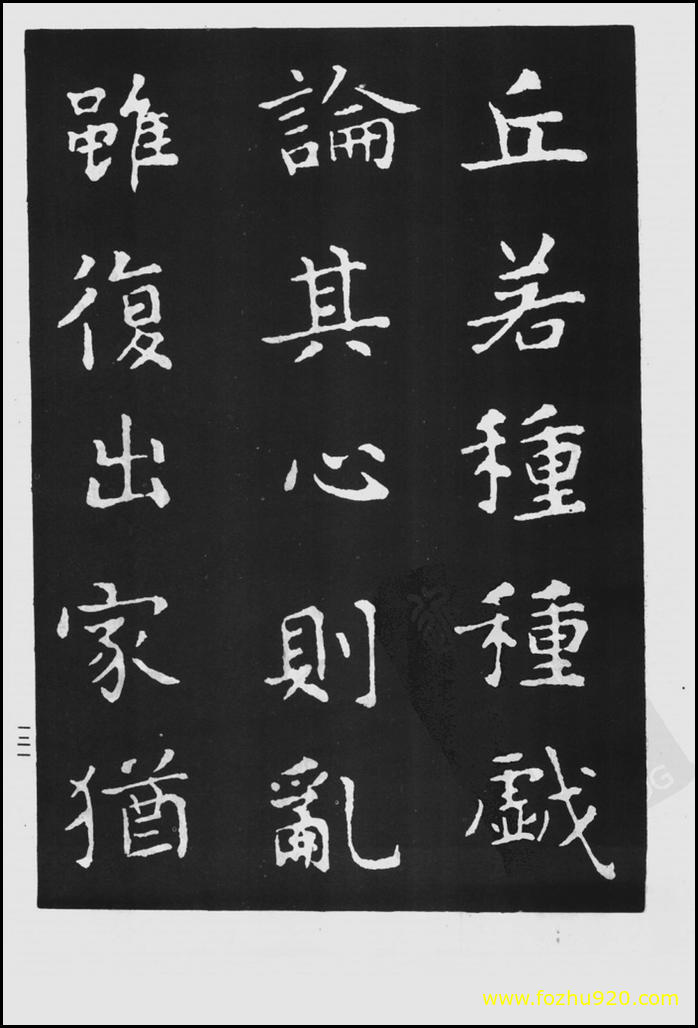 丘若種種戯
論其心則亂
雖復出家猶
三二
www.fozhu920.com